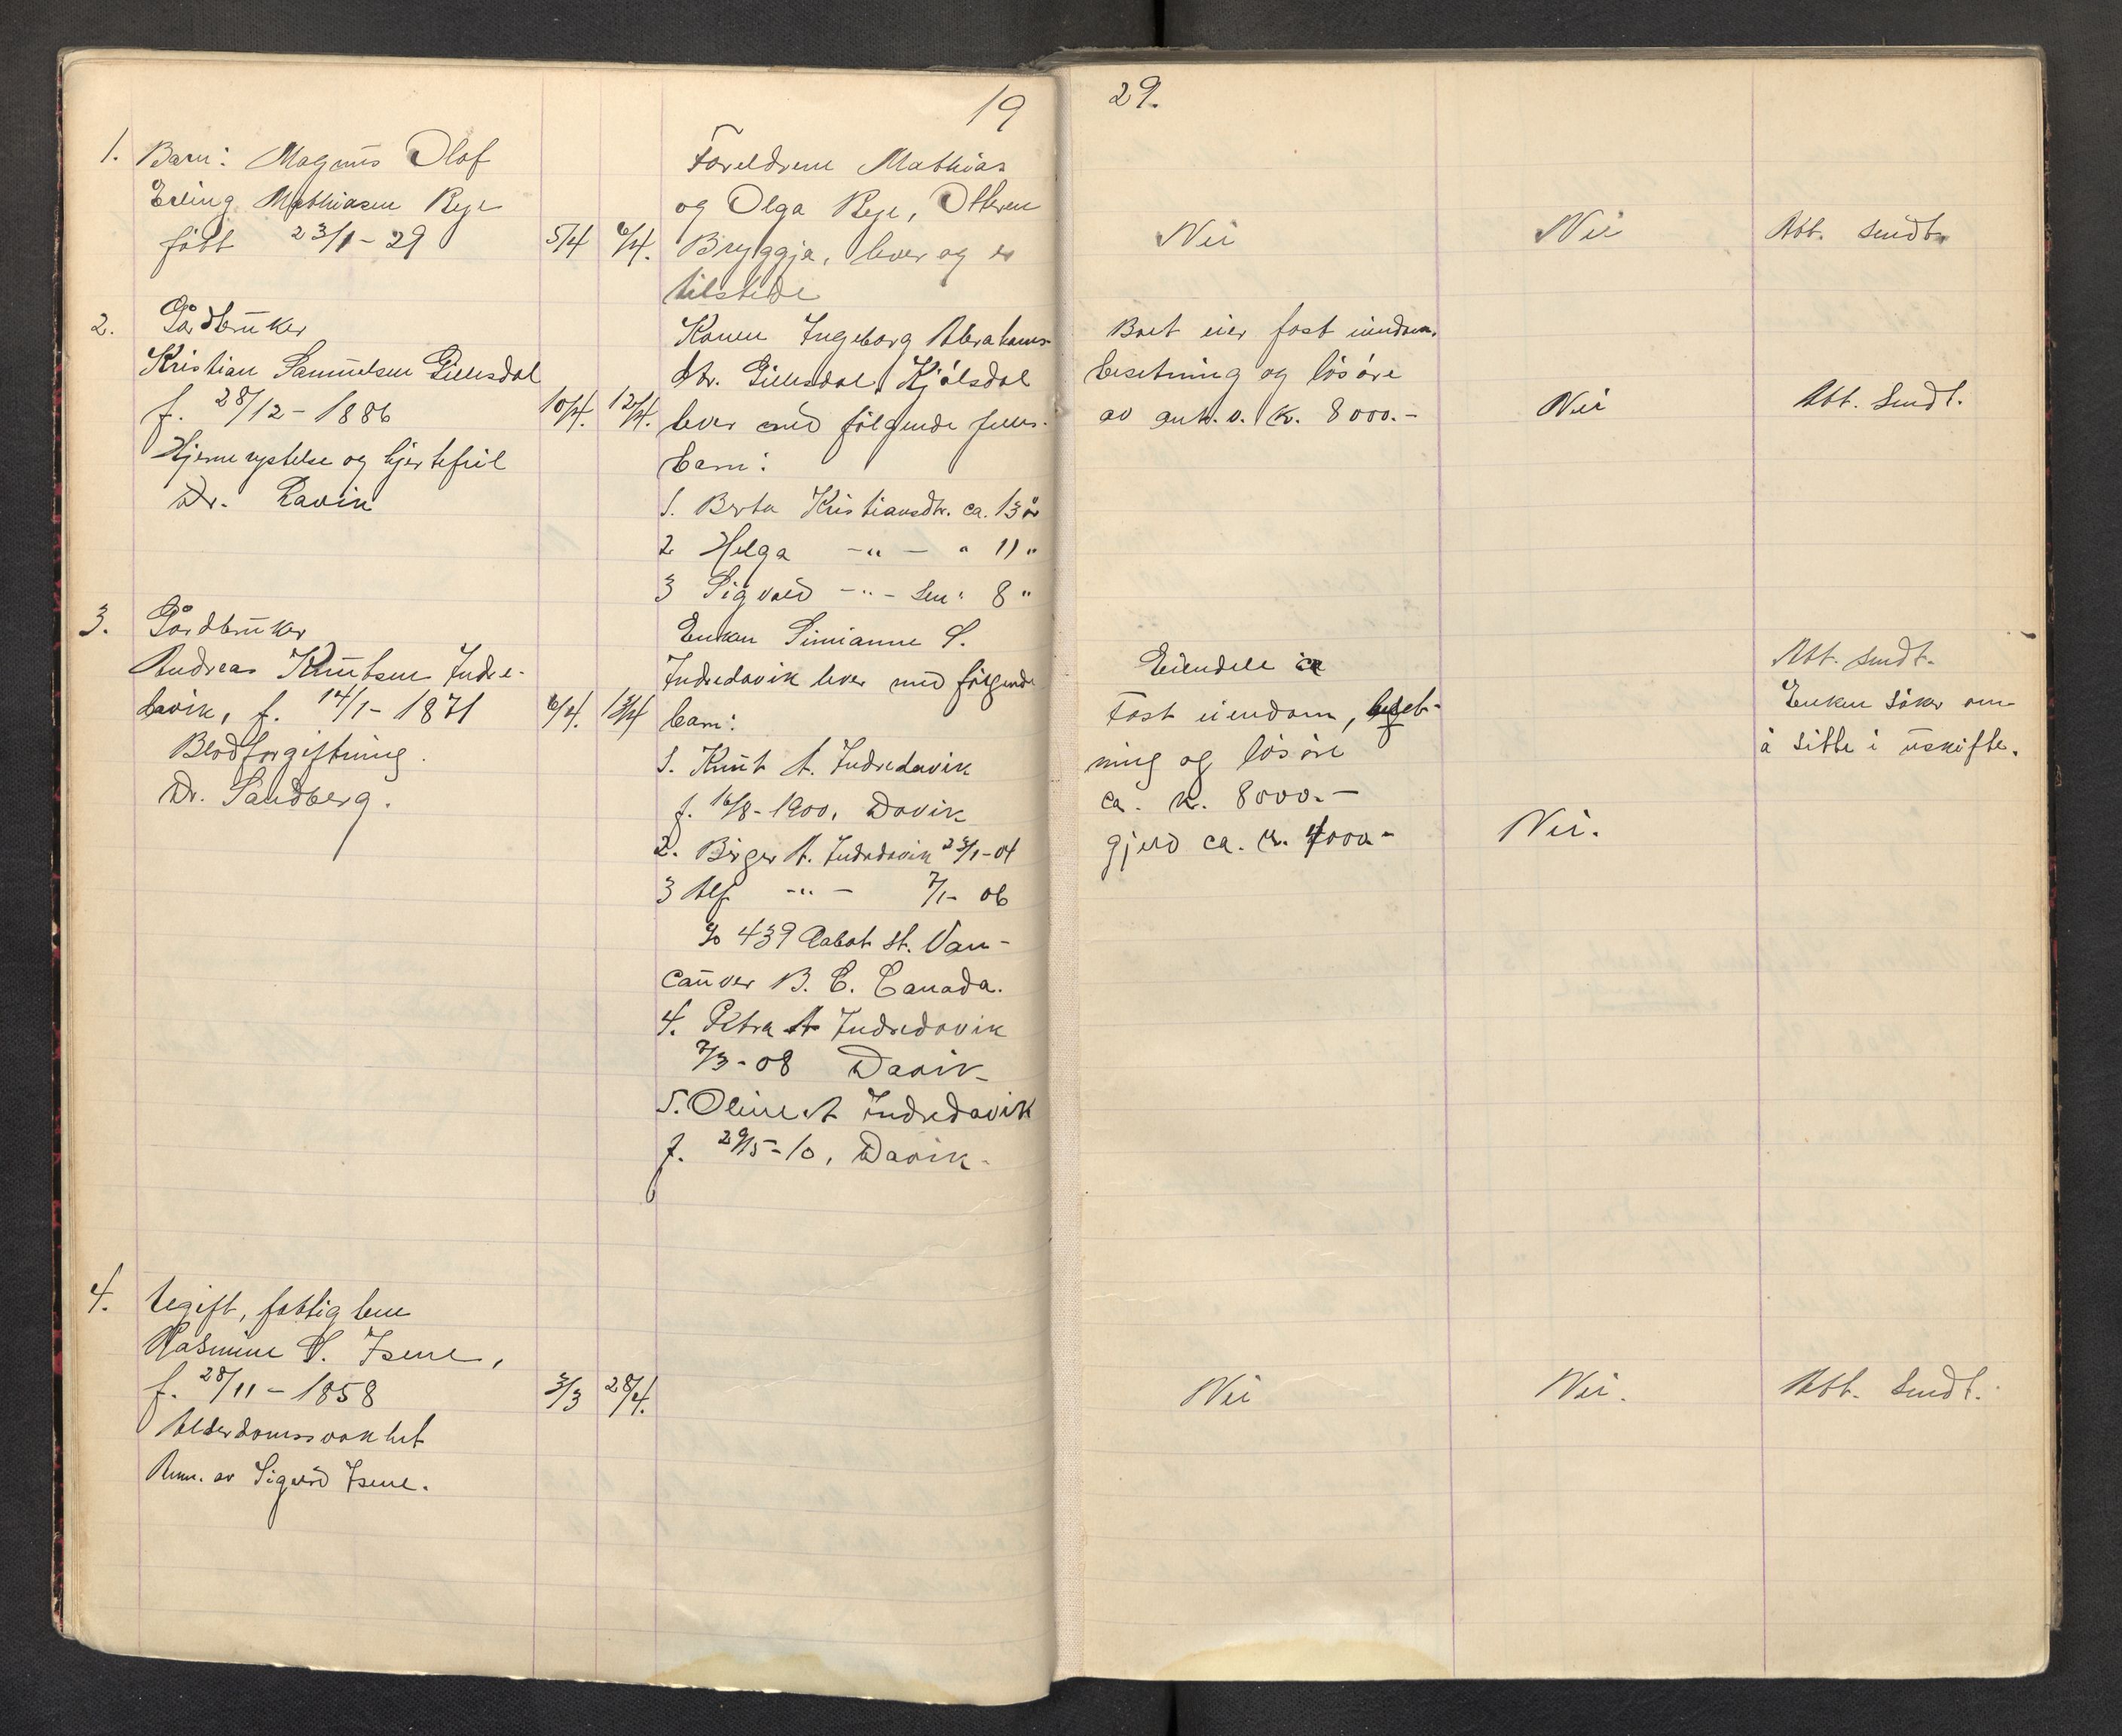 19
29.
1. Barn: Magnus Olaf
Erling Mathiasen Reje
født 23/1 - 29
5/4
6/4.
Foreldrene Mathias
og Olga Reje, Otteren
Bryggja, lever og er
tilstede
Nei
Nei
Att. sendt.
2. Gårdbruker
Kristian Samuelsen Gillesdal
f. 28/12 - 1886
Hjernerystelse og hjertefeil
Dr. Ravik
10/4.
12/4.
Konen Ingeborg Abrahams-
dtr. Gillesdal, Kjølsdal
lever med følgende felles-
barn:
1. Berta Kristiansdtr. ca. 13 år
2 Helga -"- " 11 "
3 Sigvald -"- sen " 8 "
Boet eier fast eiendom,
besetning og løsøre
av ant. v. k. 8000.-
Nei
Att. Sendt.
3. Gårdbruker
Andreas Knutsen Indre-
davik, f. 14/1 - 1871
Blodforgiftning.
Dr. Sandberg.
6/4.
13/4
Enken Simianne S.
Indredavik lever med følgende
barn:
1. Knut A. Indredavik
f. 16/8 - 1900, Davik
2. Birger A. Indredavik 23/1-04
3 Alf -"- 7/1- 06
% 439 Cabot St. Van-
cauver B. C. Canada.
4. Petra A Indredavik
7/3 - 08 Davik
5. Oline A Indredavik
f. 29/5 - 10, Davik.
Eiendele
Fast eiendom, beset-
ning og løsøre
ca. k. 8000.-
gjeld ca. kr. 4000-
Nei.
Att. sendt.
Enken søker om
å sitte i uskifte.
4. Ugift, fattiglem
Rasmine S. Isene,
f. 28/11 - 1858
Alderdomssvakhet
Anm. av Sigvard Isene.
3/3
28/4.
Nei
Nei.
Att. Sendt.